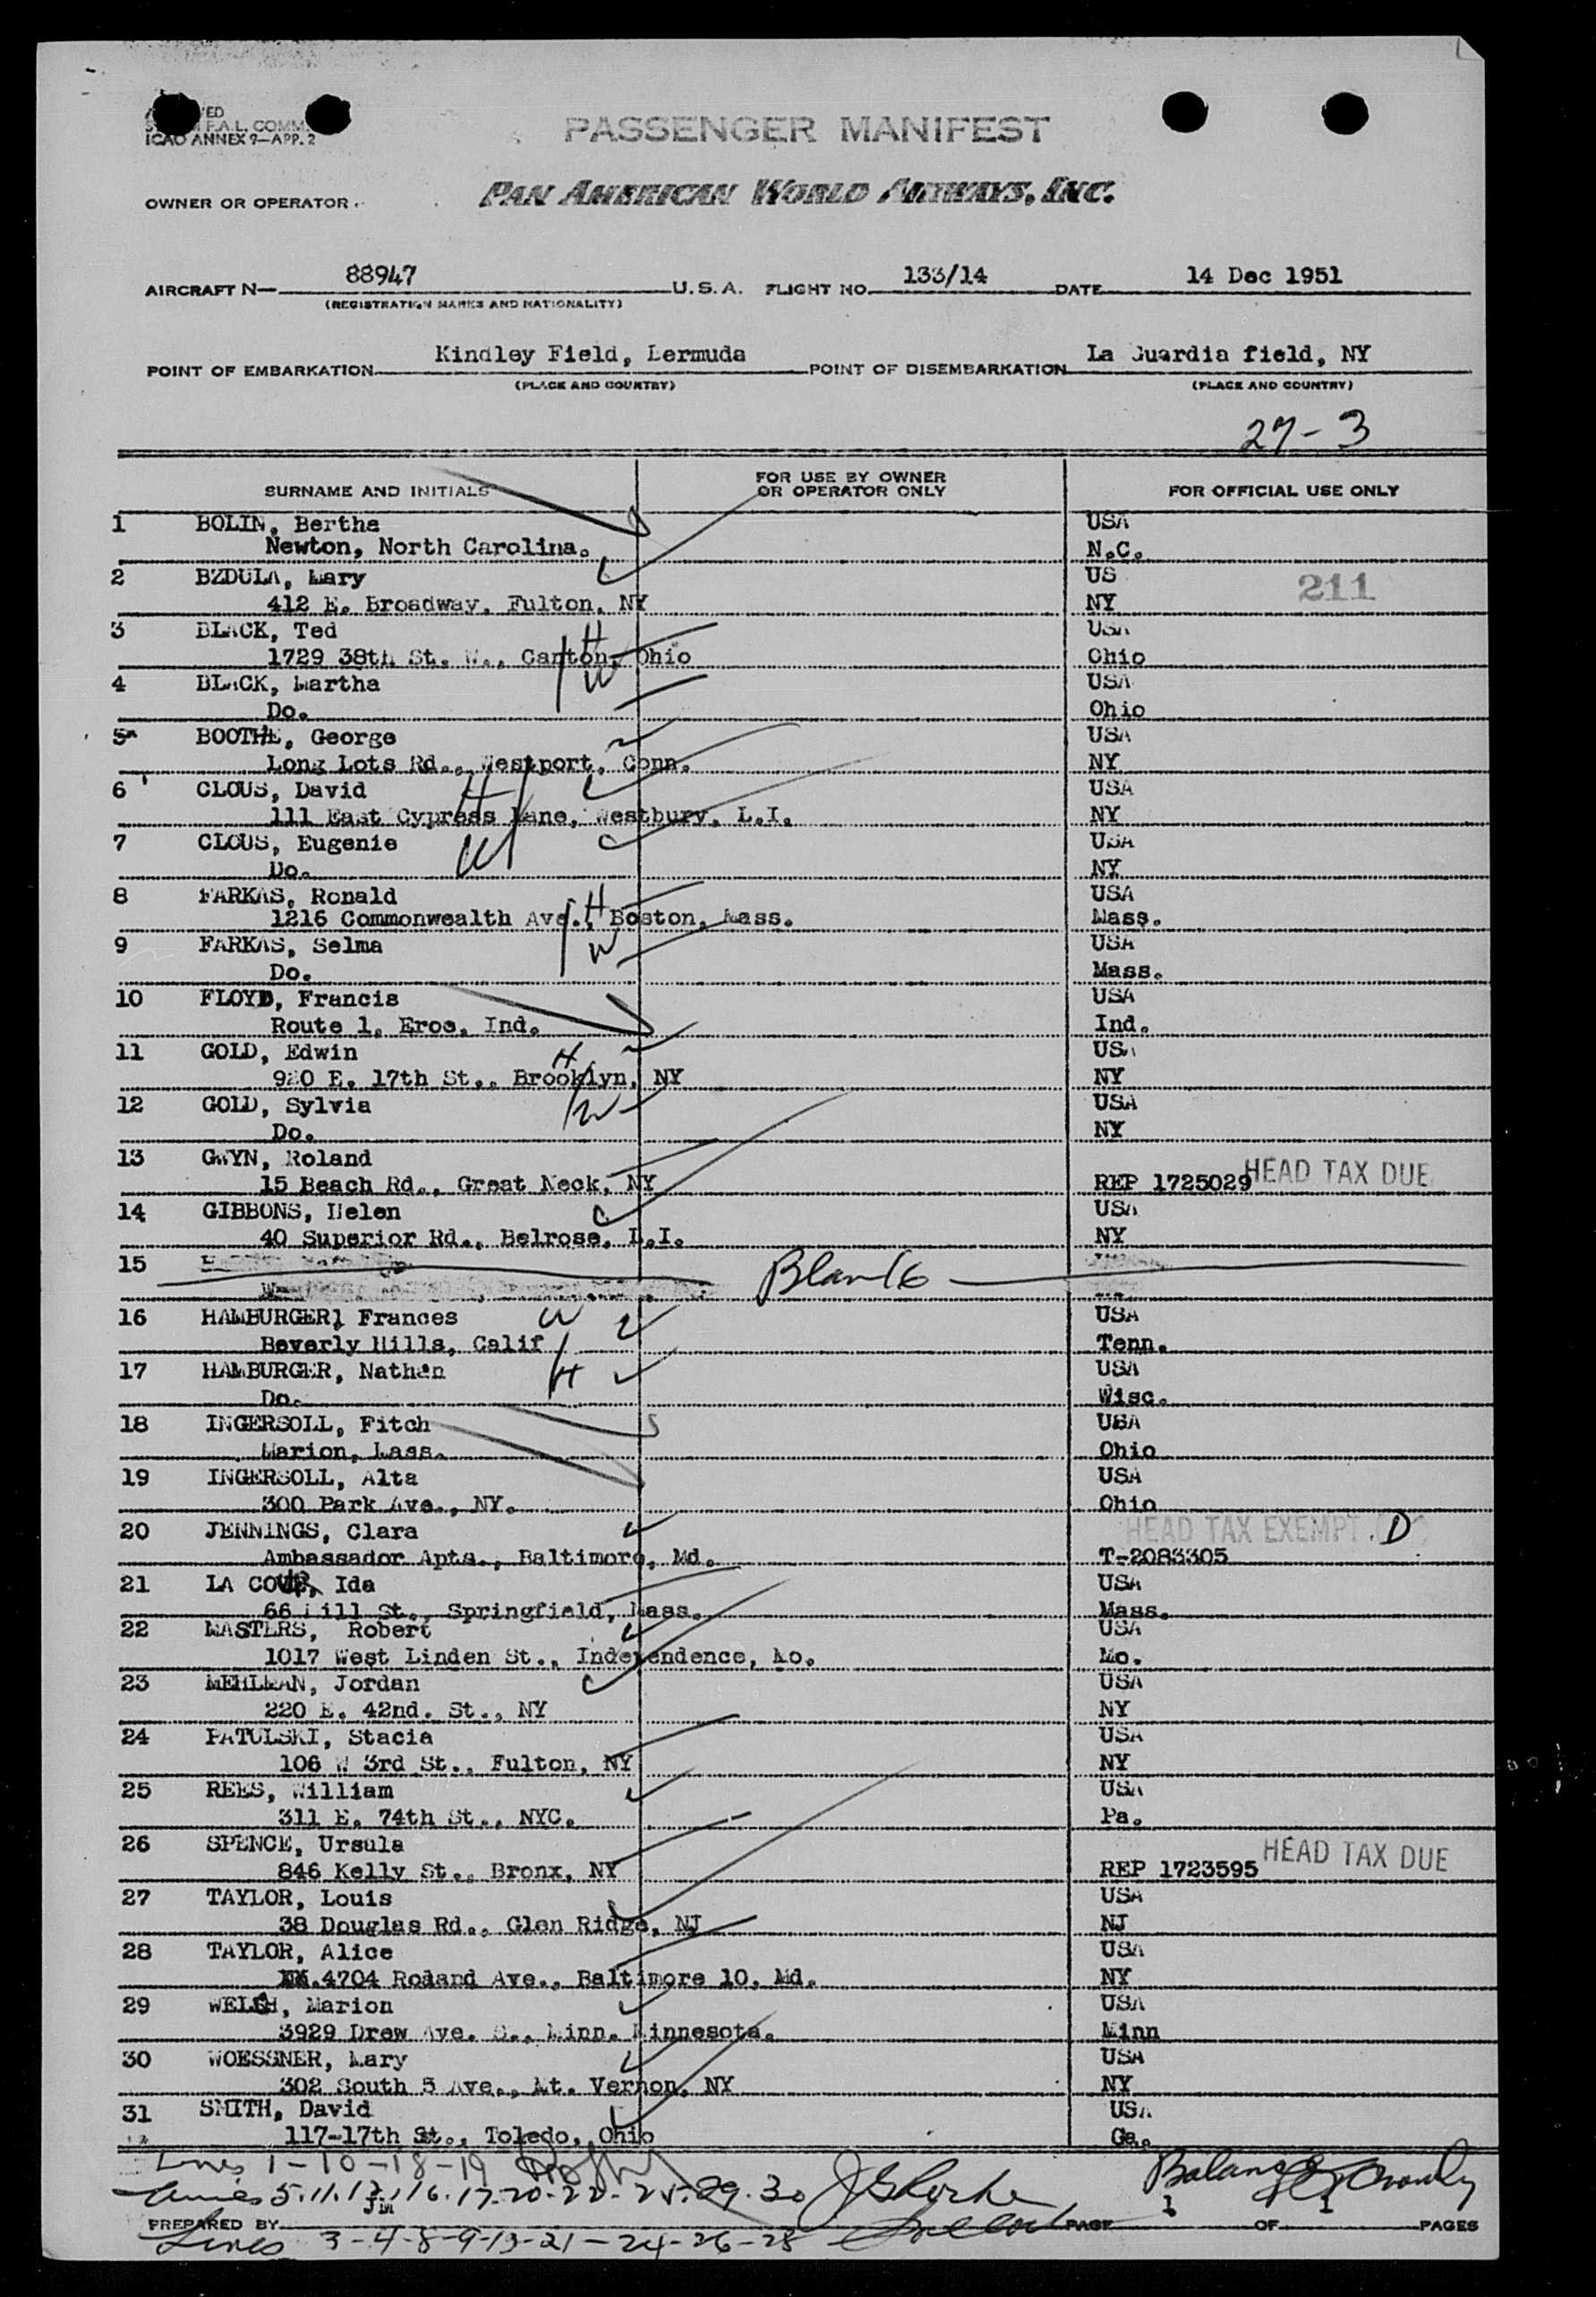 F.A.L. COMM.
ICAO ANNEX 9—APP. 2
PASSENGER MANIFEST
OWNER OR OPERATOR
PAN AMERICAN WORLD AIRWAYS, INC.
AIRCRAFT N— 88947 U.S.A. FLIGHT NO. 133/14 DATE 14 Dec 1951
(REGISTRATION MARKS AND NATIONALITY)
POINT OF EMBARKATION Kindley Field, Bermuda POINT OF DISEMBARKATION La Guardia field, NY
(PLACE AND COUNTRY) (PLACE AND COUNTRY)
27-3
SURNAME AND INITIALS FOR USE BY OWNER OR OPERATOR ONLY FOR OFFICIAL USE ONLY
1 BOLIN, Bertha USA
Newton, North Carolina. N.C.
2 BZDULA, Mary US
211
412 E. Broadway, Fulton, NY NY
3 BLACK, Ted H USA
1729 38th St. W., Canton, Ohio Ohio
4 BLACK, Martha W USA
Do. Ohio
5 BOOTHE, George USA
Long Lots Rd., Westport, Conn. NY
6 CLOUS, David H USA
111 East Cypress Lane, Westbury, L.I. NY
7 CLOUS, Eugenie W USA
Do. NY
8 FARKAS, Ronald H USA
1216 Commonwealth Ave., Boston, Mass. Mass.
9 FARKAS, Selma W USA
Do. Mass.
10 FLOYD, Francis USA
Route 1, Eros, Ind. Ind.
11 GOLD, Edwin H USA
920 E. 17th St., Brooklyn, NY NY
12 GOLD, Sylvia W USA
Do. NY
13 GWYN, Roland HEAD TAX DUE
15 Beach Rd., Great Neck, NY REP 1725029
14 GIBBONS, Helen USA
40 Superior Rd., Belrose, L.I. NY
15 Blank
16 HAMBURGER, Frances W USA
Beverly Hills, Calif Tenn.
17 HAMBURGER, Nathan H USA
Do. Wisc.
18 INGERSOLL, Fitch USA
Marion, Mass. Ohio
19 INGERSOLL, Alta USA
300 Park Ave., NY. Ohio
20 JENNINGS, Clara HEAD TAX EXEMPT. D
Ambassador Apts., Baltimore, Md. T-2083305
21 LA Ida USA
66 Mill St., Springfield, Mass. Mass.
22 MASTERS, Robert USA
1017 West Linden St., Independence, Mo. Mo.
23 MEHLMAN, Jordan USA
220 E. 42nd. St., NY NY
24 PATULSKI, Stacia USA
106 W 3rd St., Fulton, NY NY
25 REES, William USA
311 E. 74th St., NYC. Pa.
26 SPENCE, Ursula HEAD TAX DUE
846 Kelly St., Bronx, NY REP 1723595
27 TAYLOR, Louis USA
38 Douglas Rd., Glen Ridge, NJ NJ
28 TAYLOR, Alice USA
4704 Roland Ave., Baltimore 10, Md. NY
29 WELSH, Marion USA
3929 Drew Ave. S., Minn. Minnesota. Minn
30 WOESSNER, Mary USA
302 South 5 Ave., Mt. Vernon, NY NY
31 SMITH, David USA
117-17th St., Toledo, Ohio Ga.
Lines 1-10-18-19
Lines 5.11.12.16.17-20-22-25.29.30 Balance
PREPARED BY JM PAGE 1 OF 1 PAGES
Lines 3-4-8-9-13-21-24-26-28